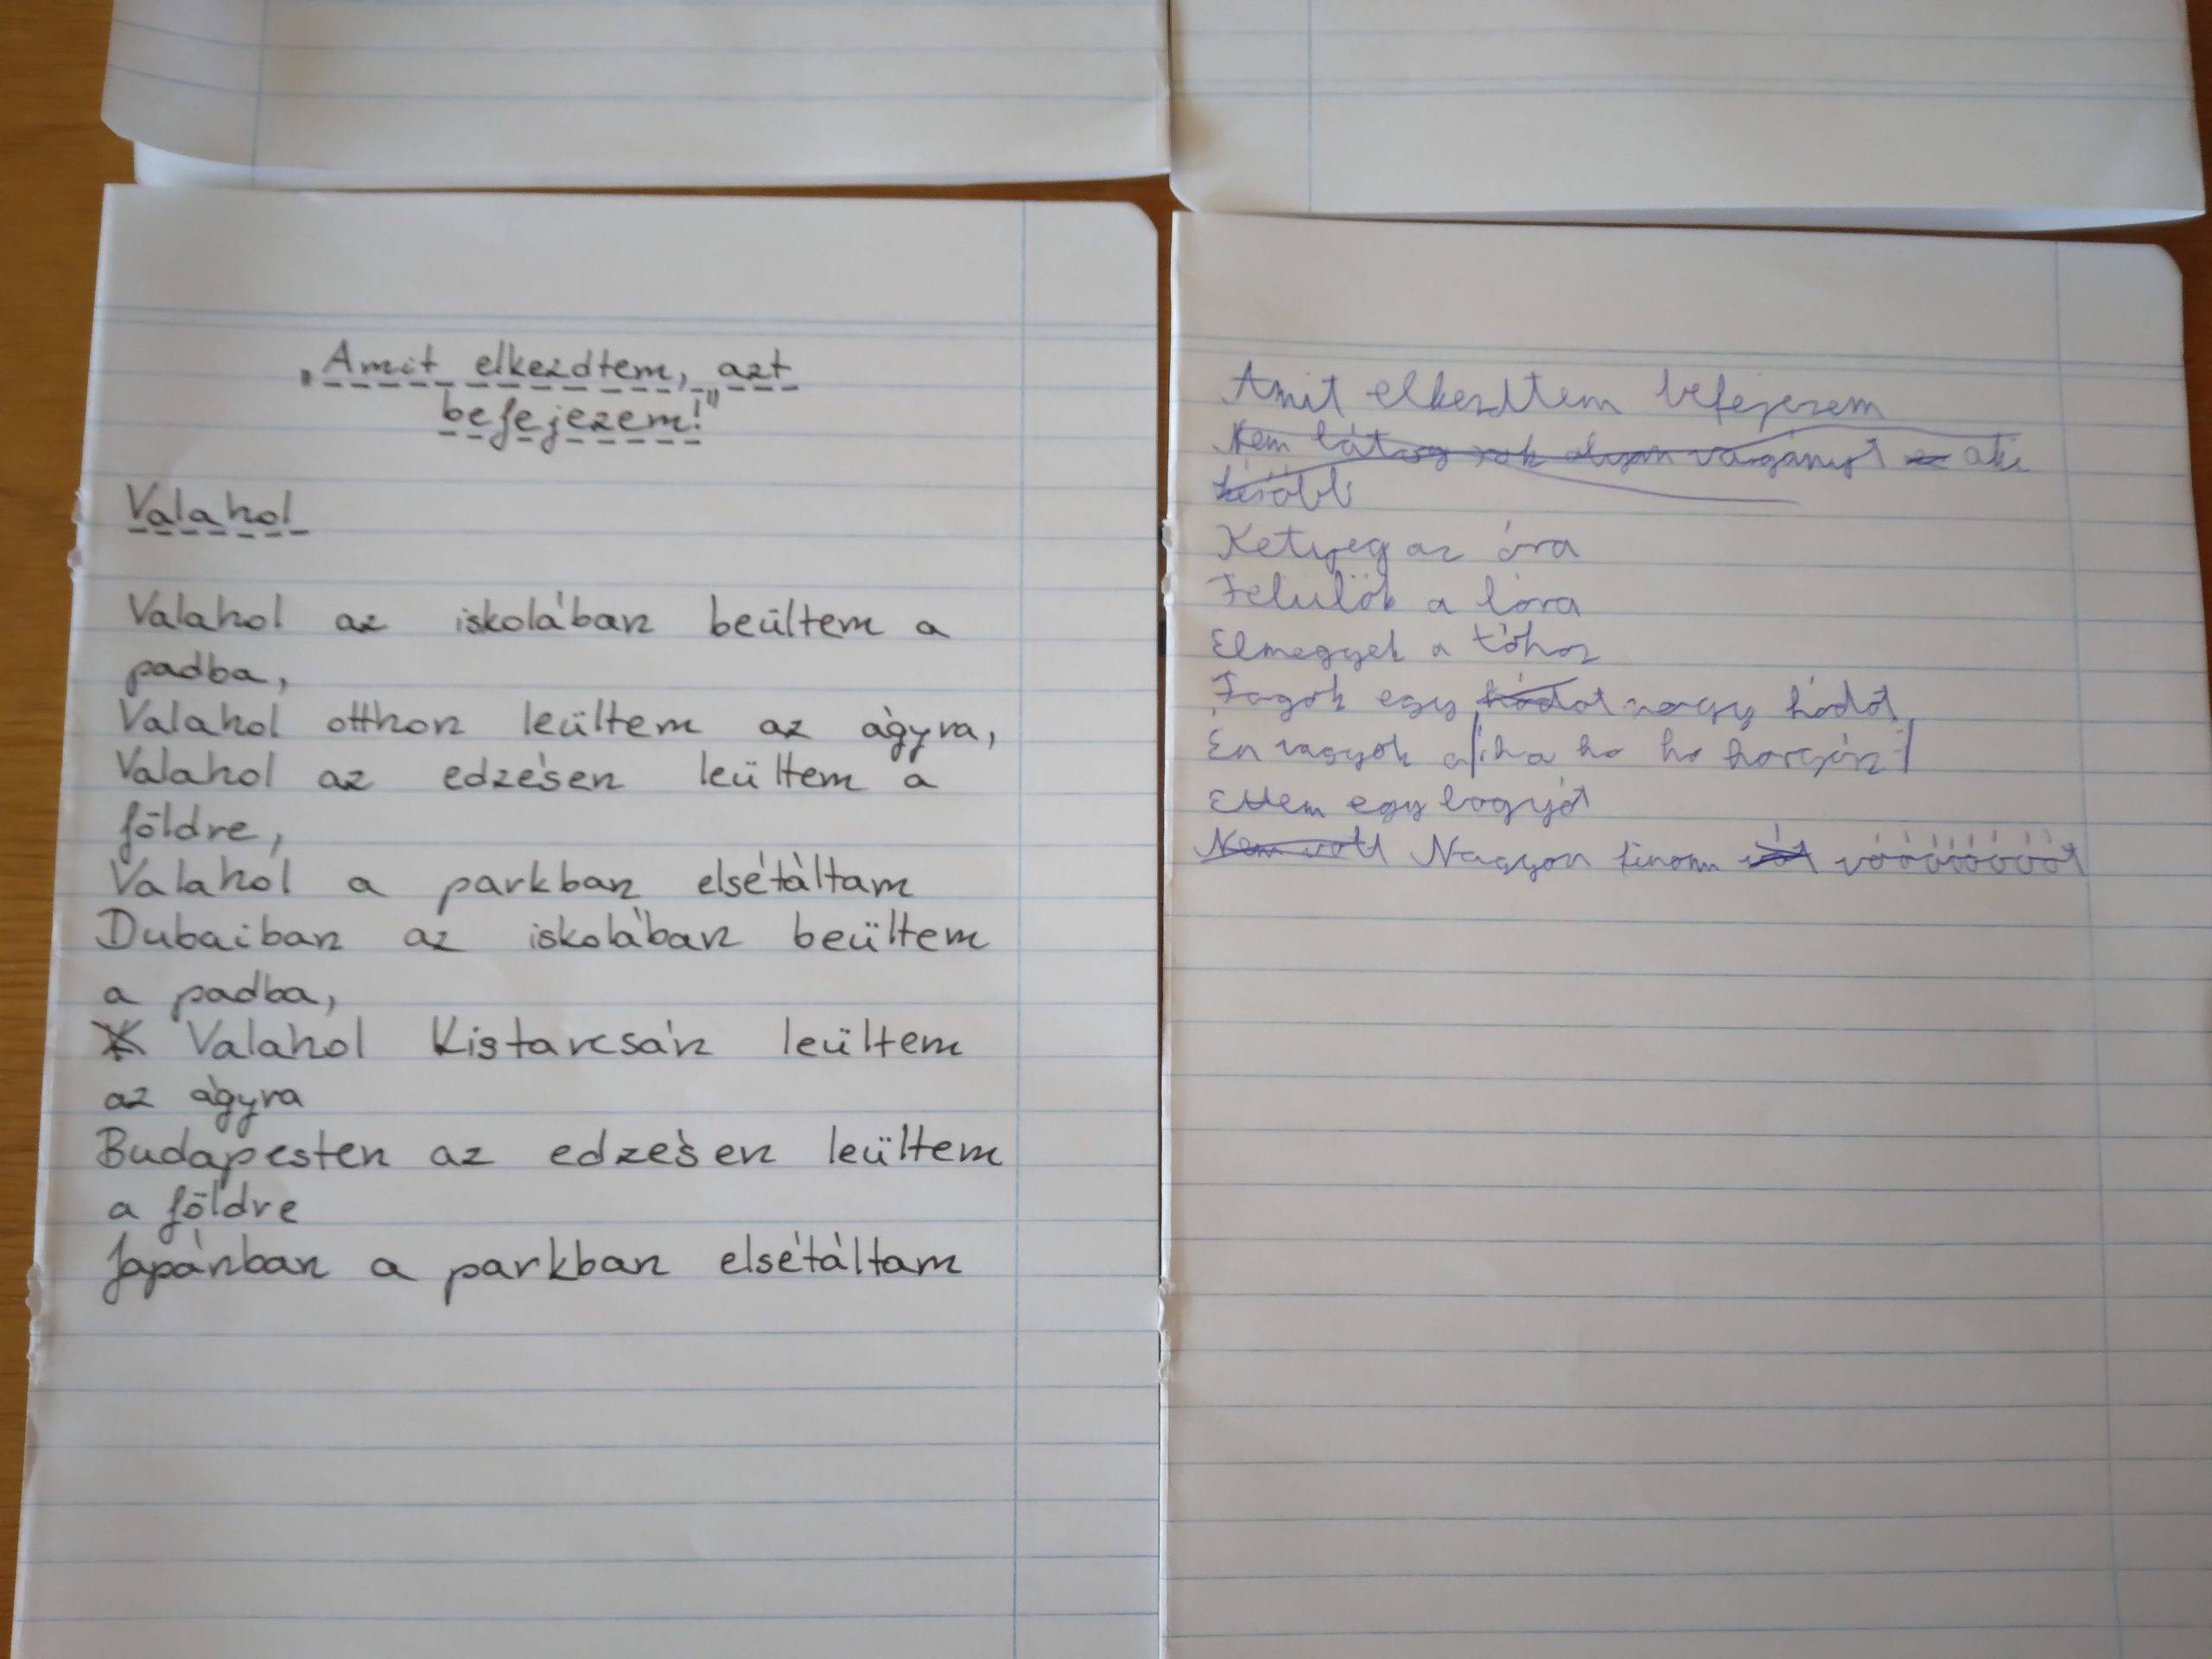 „Amit elkezdtem, azt
befejezem!"
Valahol
Valahol az iskolában beültem a
padba,
Valahol otthon leültem az ágyra,
Valahol az edzésen leültem a
földre,
Valahol a parkban elsétáltam
Dubaiban az iskolában beültem
a padba,
Valahol Kistarcsán leültem
az ágyra
Budapesten az edzésen leültem
a földre
Japánban a parkban elsétáltam
Amit elkezdtem befejezem
Nem aki
később
Ketyeg az óra
Felülök a lóra
Elmegyek a tóhoz
Fogok egy hódot nagy hódot
Én vagyok a ha ho ho horgász
Ettem egy bogyót
Nem volt Nagyon finom vót vóóóóóóót